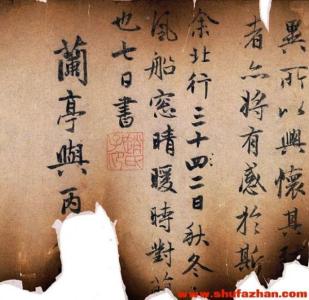 異所以興懷其
者亦將有感於斯
余北行三十四二日秋冬
風船窓晴暖時對
也七日書
趙氏子昂
蘭亭與丙
www.shufazhan.com